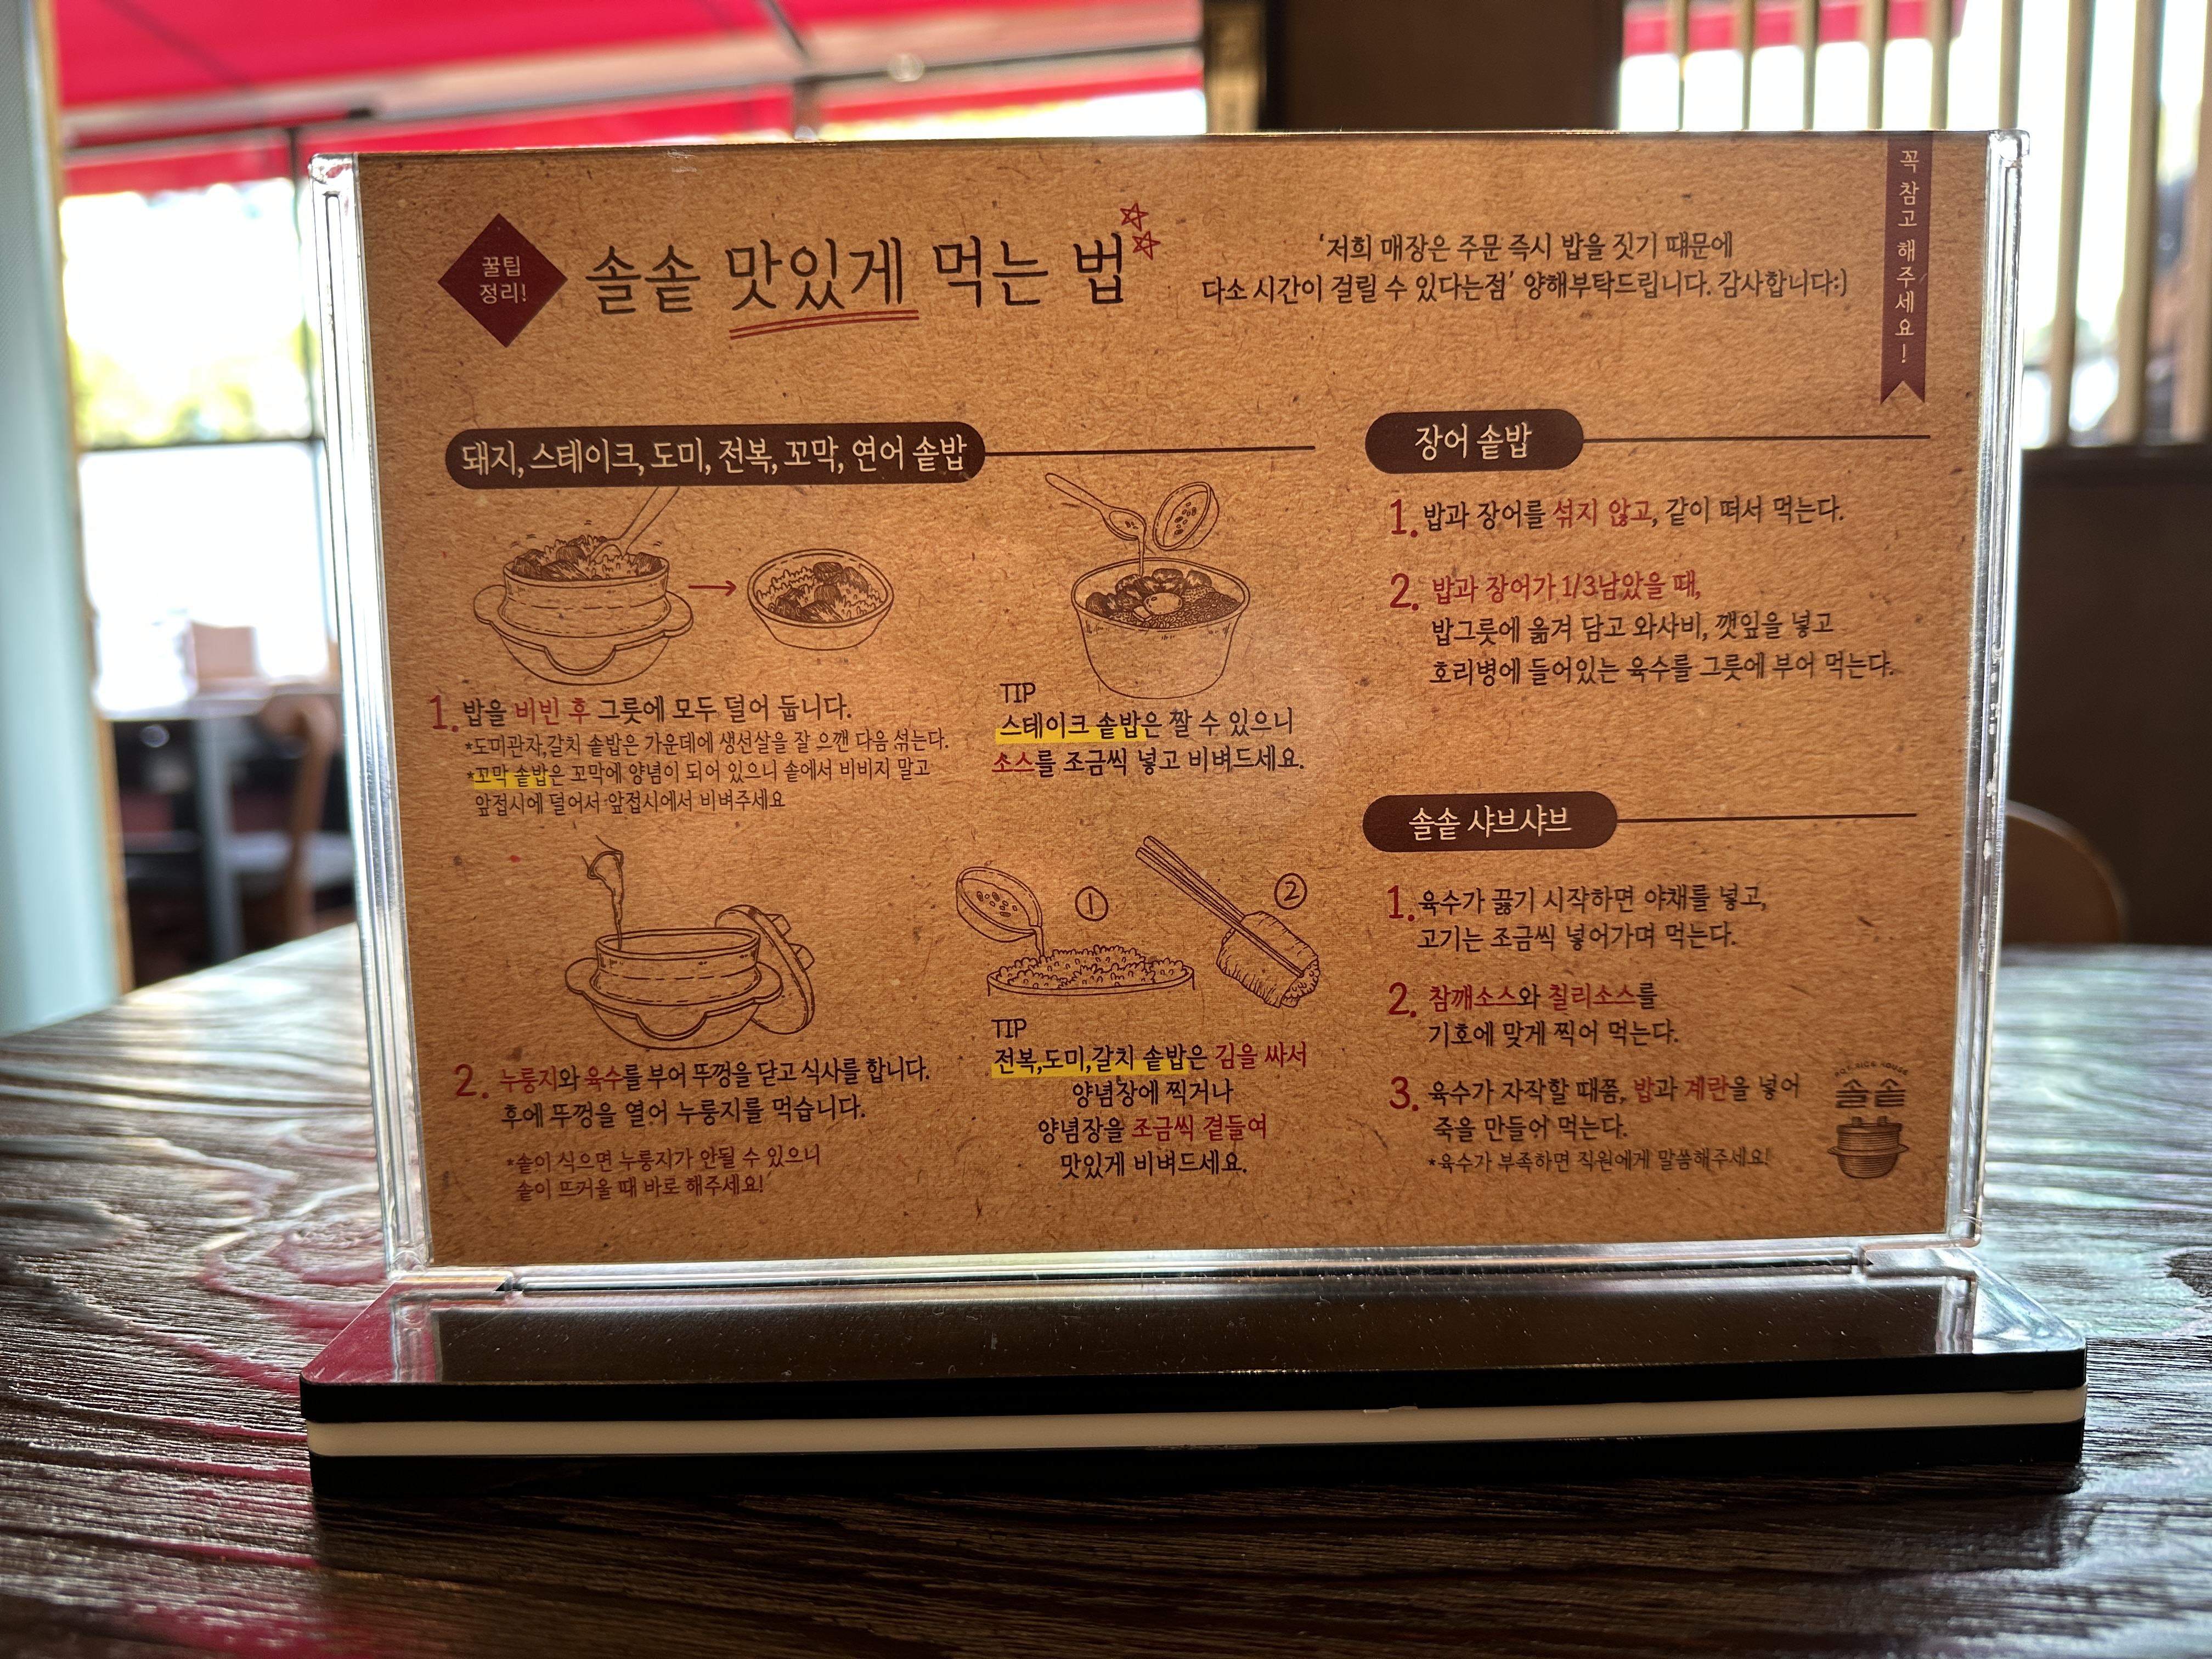 꿀팁
정리!
솔솥 맛있게 먹는 법
'저희 매장은 주문 즉시 밥을 짓기 떄문에
다소 시간이 걸릴 수 있다는점' 양해부탁드립니다. 감사합니다:)
꼭 참고 해주세요!
돼지, 스테이크, 도미, 전복, 꼬막, 연어 솥밥
1. 밥을 비빈 후 그릇에 모두 덜어 둡니다.
*도미관자,갈치 솥밥은 가운데에 생선살을 잘 으깬 다음 섞는다.
*꼬막 솥밥은 꼬막에 양념이 되어 있으니 솥에서 비비지 말고
앞접시에 덜어서 앞접시에서 비벼주세요
TIP
스테이크 솥밥은 짤 수 있으니
소스를 조금씩 넣고 비벼드세요.
2. 누룽지와 육수를 부어 뚜껑을 닫고 식사를 합니다.
후에 뚜껑을 열어 누룽지를 먹습니다.
*솥이 식으면 누룽지가 안될 수 있으니
솥이 뜨거울 때 바로 해주세요!
①
②
TIP
전복,도미,갈치 솥밥은 김을 싸서
양념장에 찍거나
양념장을 조금씩 곁들여
맛있게 비벼드세요.
장어 솥밥
1. 밥과 장어를 섞지 않고, 같이 떠서 먹는다.
2. 밥과 장어가 1/3남았을 때,
밥그릇에 옮겨 담고 와사비, 깻잎을 넣고
호리병에 들어있는 육수를 그릇에 부어 먹는다.
솔솥 샤브샤브
1. 육수가 끓기 시작하면 야채를 넣고,
고기는 조금씩 넣어가며 먹는다.
2. 참깨소스와 칠리소스를
기호에 맞게 찍어 먹는다.
3. 육수가 자작할 때쯤, 밥과 계란을 넣어
죽을 만들어 먹는다.
*육수가 부족하면 직원에게 말씀해주세요!
POT RICE HOUSE
솔솥